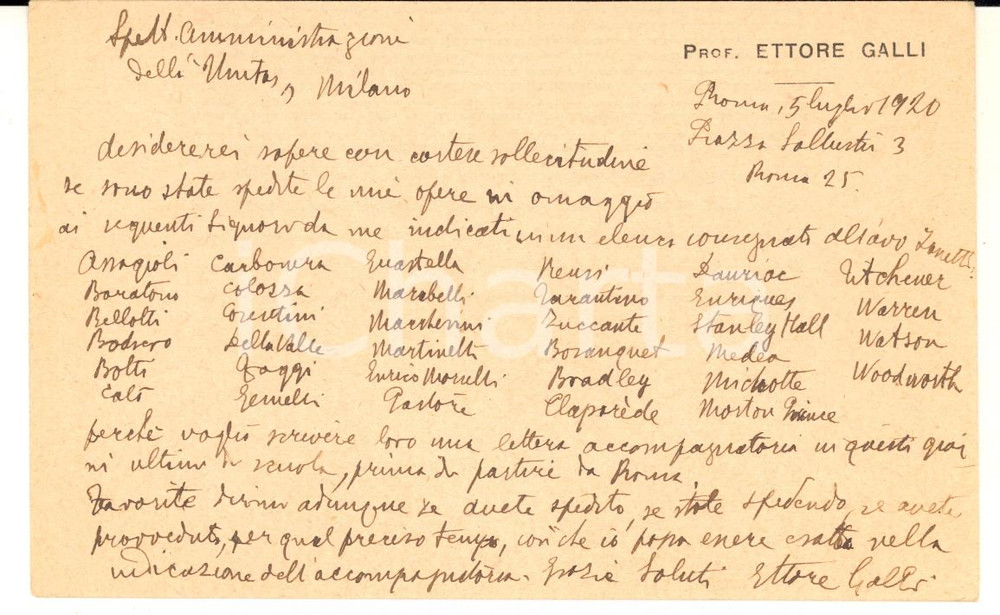 Spett. Amministrazione
dell'Unitas, Milano
PROF. ETTORE GALLI
Roma, 5 luglio 1920
Piazza Sallustio 3
Roma 25.
desidererei sapere con cortese sollecitudine
se sono state spedite le mie opere in omaggio
ai seguenti Signori da me indicati in un elenco consegnato all'avv Zanetti:
Assagioli Carbonera Guastella Rensi Dauriac Titchener
Baratono Colozza Marabelli Tarantino Enriques Warren
Bellotti Cosentini Marchesini Zuccante Stanley Hall Watson
Bodrero Della Valle Martinetti Bosanquet Medea Woodworth
Botti Faggi Enrico Morselli Bradley Michotte
Calò Gemelli Pastore Claparède Morton Prince
perchè voglio scrivere loro una lettera accompagnatoria in questi gior-
ni ultimi di scuola, prima di partire da Roma.
Favorite dirmi adunque se avete spedito, se state spedendo, se avete
provveduto, per qual preciso tempo, così che io possa essere esatto nella
indicazione dell'accompagnatoria. Grazie Saluti Ettore Galli